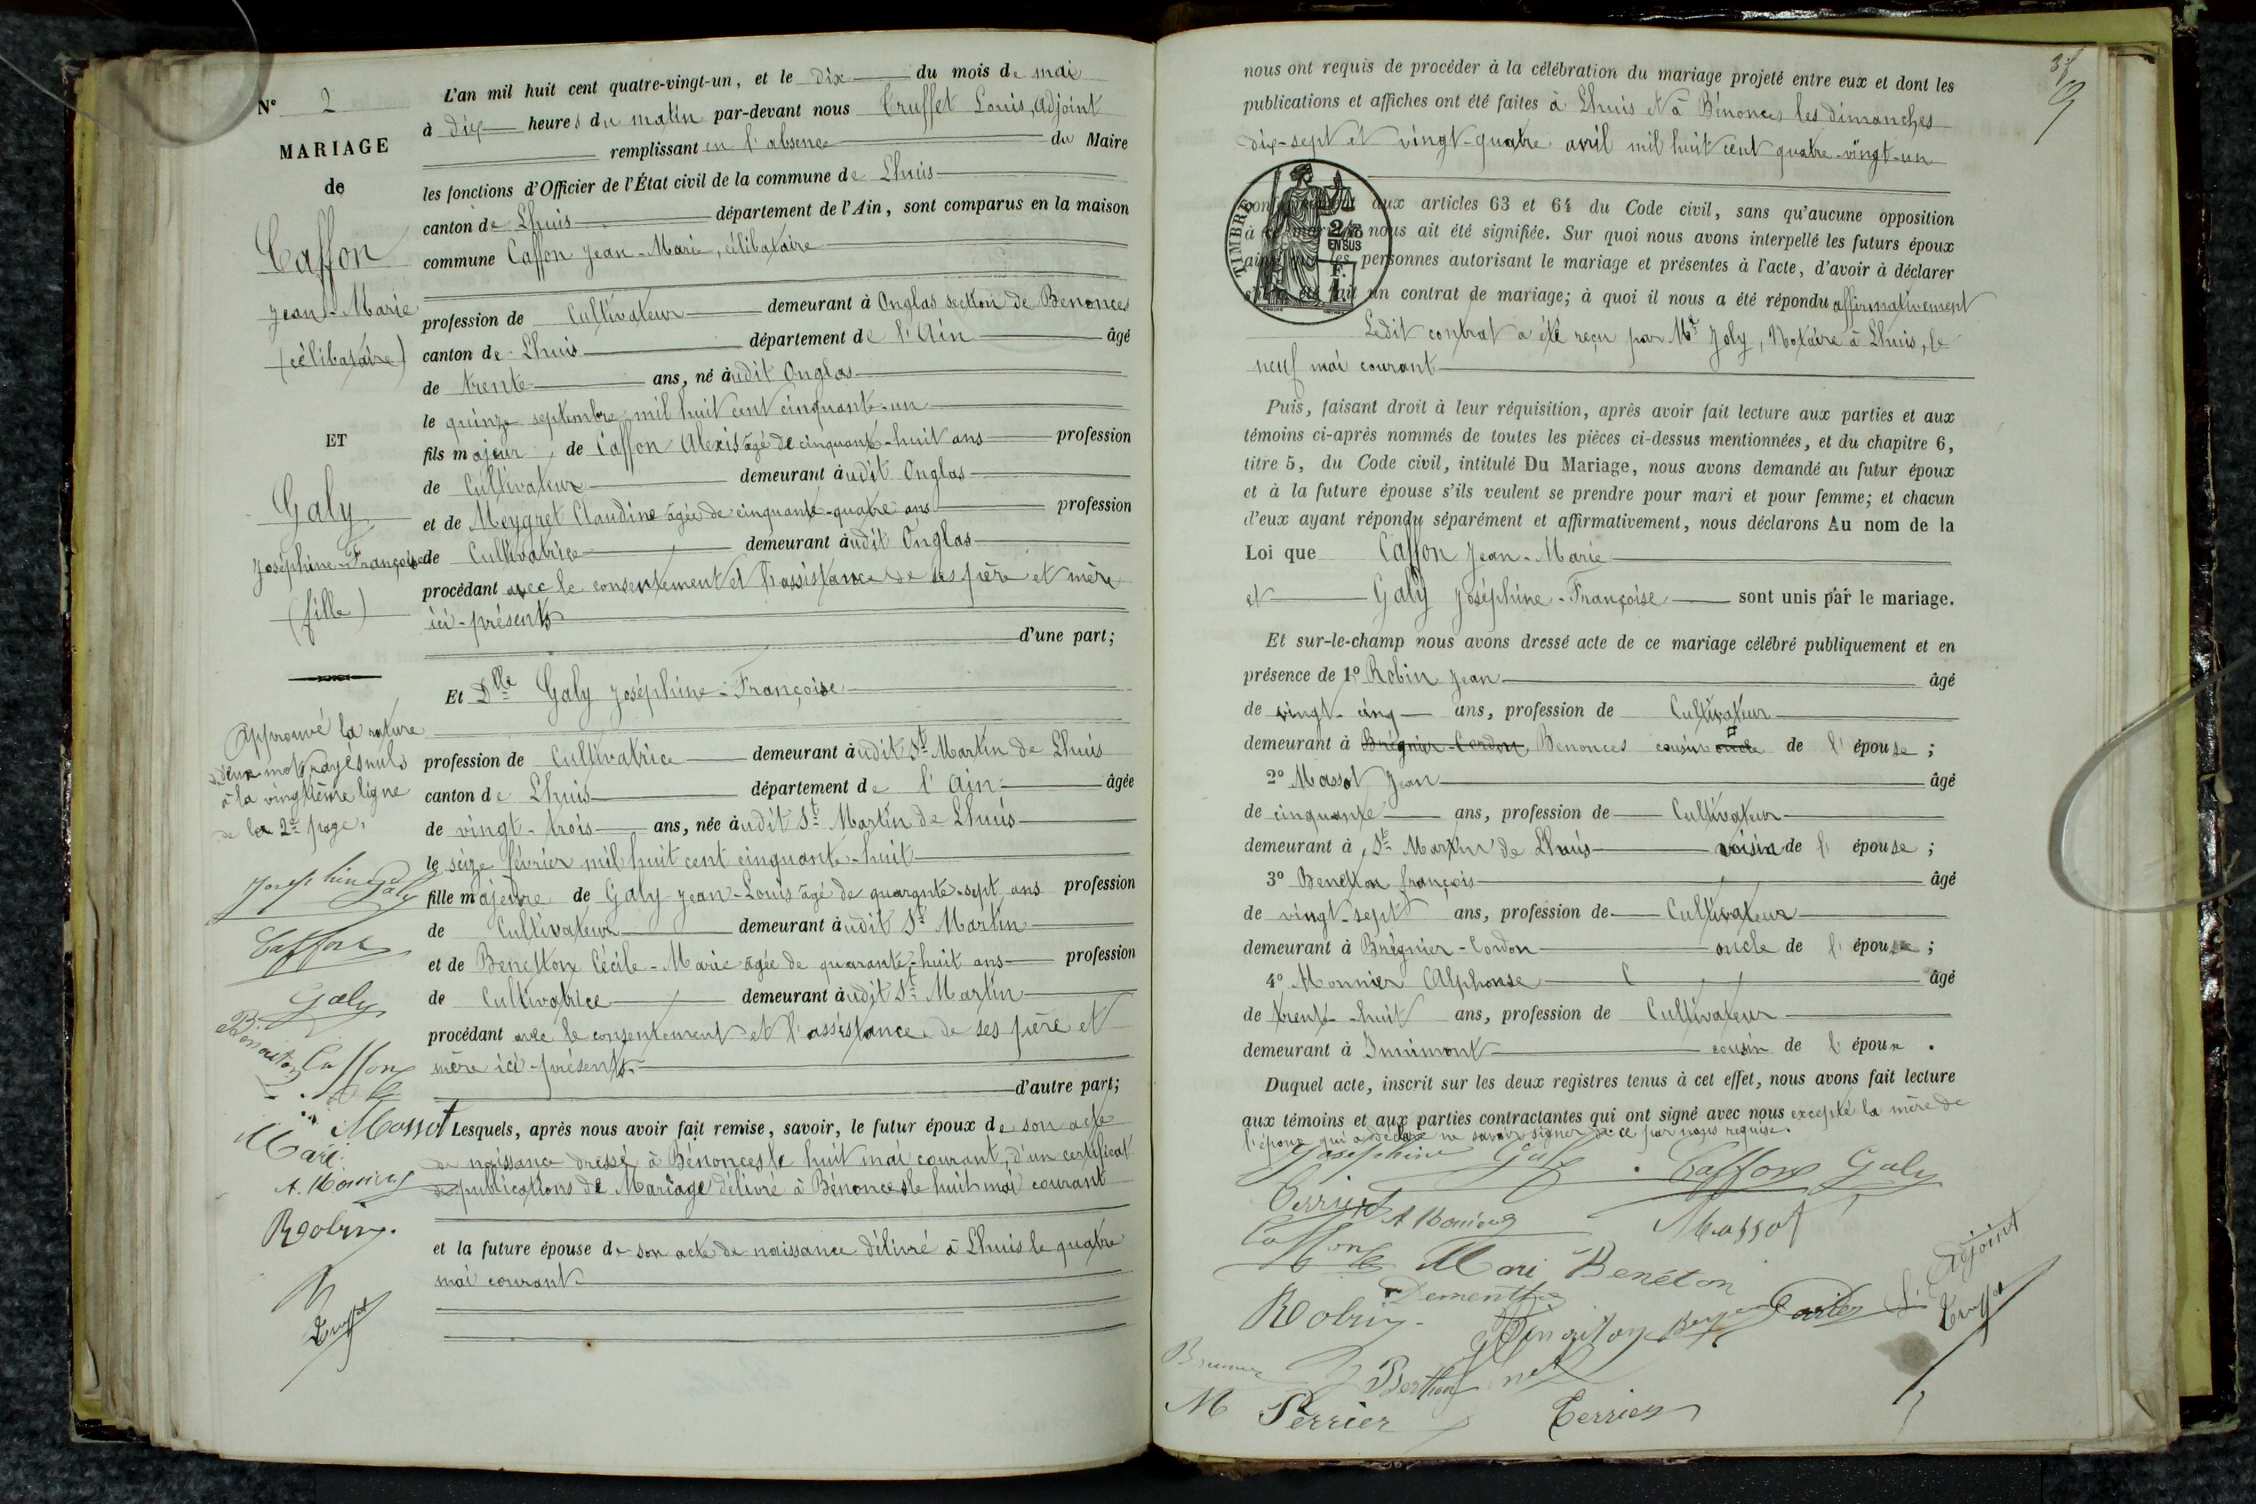 N° 2
MARIAGE
de
Caffon
Jean-Marie
(célibataire)
ET
Galy
Joséphine-Françoise
(fille)
Approuvé la rature
deux mots rayés nuls
à la vingtième ligne
de la 2e page.
Josephine Galy
Caffon
Galy
Caffon
Massot
Mari
Robin
Truffet
L'an mil huit cent quatre-vingt-un, et le dix du mois de mai
à dix heures du matin par-devant nous Truffet Louis, Adjoint
remplissant en l'absence du Maire
les fonctions d'Officier de l'État civil de la commune de Lhuis
canton de Lhuis département de l'Ain, sont comparus en la maison
commune Caffon Jean-Marie, célibataire
profession de Cultivateur demeurant à Onglas section de Benonces
canton de Lhuis département de l'Ain âgé
de trente ans, né audit Onglas
le quinze septembre mil huit cent cinquante-un
fils majeur, de Caffon Alexis âgé de cinquante-huit ans profession
de Cultivateur demeurant audit Onglas
et de Meygret Claudine âgée de cinquante-quatre ans profession
de Cultivatrice demeurant audit Onglas
procédant avec le consentement et l'assistance de ses père et mère
ici-présents
d'une part;
Et Dlle Galy Joséphine-Françoise
profession de Cultivatrice demeurant audit St Martin de Lhuis
canton de Lhuis département de l'Ain âgée
de vingt-trois ans, née audit St Martin de Lhuis
le seize février mil huit cent cinquante-huit
fille majeure de Galy Jean-Louis âgé de quarante-sept ans profession
de Cultivateur demeurant audit St Martin
et de Benetton Cécile-Marie âgée de quarante-huit ans profession
de Cultivatrice demeurant audit St Martin
procédant avec le consentement et l'assistance de ses père et
mère ici-présents
d'autre part;
Lesquels, après nous avoir fait remise, savoir, le futur époux de son acte
de naissance dressé à Bénonces le huit mai courant, d'un certificat
de publications de Mariage délivré à Bénonces le huit mai courant
et la future épouse de son acte de naissance délivré à Lhuis le quatre
mai courant
nous ont requis de procéder à la célébration du mariage projeté entre eux et dont les
publications et affiches ont été faites à Lhuis et à Bénonces les dimanches
dix-sept et vingt-quatre avril mil huit cent quatre-vingt-un
TIMBRE
2/10
EN SUS
F.
1
aux articles 63 et 64 du Code civil, sans qu'aucune opposition
à ce mariage nous ait été signifiée. Sur quoi nous avons interpellé les futurs époux
ainsi que les personnes autorisant le mariage et présentes à l'acte, d'avoir à déclarer
s'il a été fait un contrat de mariage; à quoi il nous a été répondu affirmativement
Ledit contrat a été reçu par Me Joly, Notaire à Lhuis, le
neuf mai courant
Puis, faisant droit à leur réquisition, après avoir fait lecture aux parties et aux
témoins ci-après nommés de toutes les pièces ci-dessus mentionnées, et du chapitre 6,
titre 5, du Code civil, intitulé Du Mariage, nous avons demandé au futur époux
et à la future épouse s'ils veulent se prendre pour mari et pour femme; et chacun
d'eux ayant répondu séparément et affirmativement, nous déclarons Au nom de la
Loi que Caffon Jean-Marie
et Galy Joséphine-Françoise sont unis par le mariage.
Et sur-le-champ nous avons dressé acte de ce mariage célébré publiquement et en
présence de 1° Robin Jean âgé
de vingt-cinq ans, profession de Cultivateur
demeurant à Brégnier-Cordon Benonces cousin oncle de l'épouse;
2° Massot Jean âgé
de cinquante ans, profession de Cultivateur
demeurant à St Martin de Lhuis voisin de l'épouse;
3° Benetton françois âgé
de vingt-sept ans, profession de Cultivateur
demeurant à Brégnier-Cordon oncle de l'épouse;
4° Monnier Alphonse âgé
de trente-huit ans, profession de Cultivateur
demeurant à Innimont cousin de l'époux.
Duquel acte, inscrit sur les deux registres tenus à cet effet, nous avons fait lecture
aux témoins et aux parties contractantes qui ont signé avec nous excepté la mère de
l'époux qui a déclaré ne savoir signer de ce par nous requise.
Josephine Galy Caffon Galy
Massot
Caffon Mari Beneton
Robin
L'Adjoint
Truffet
M Perrier Terrier